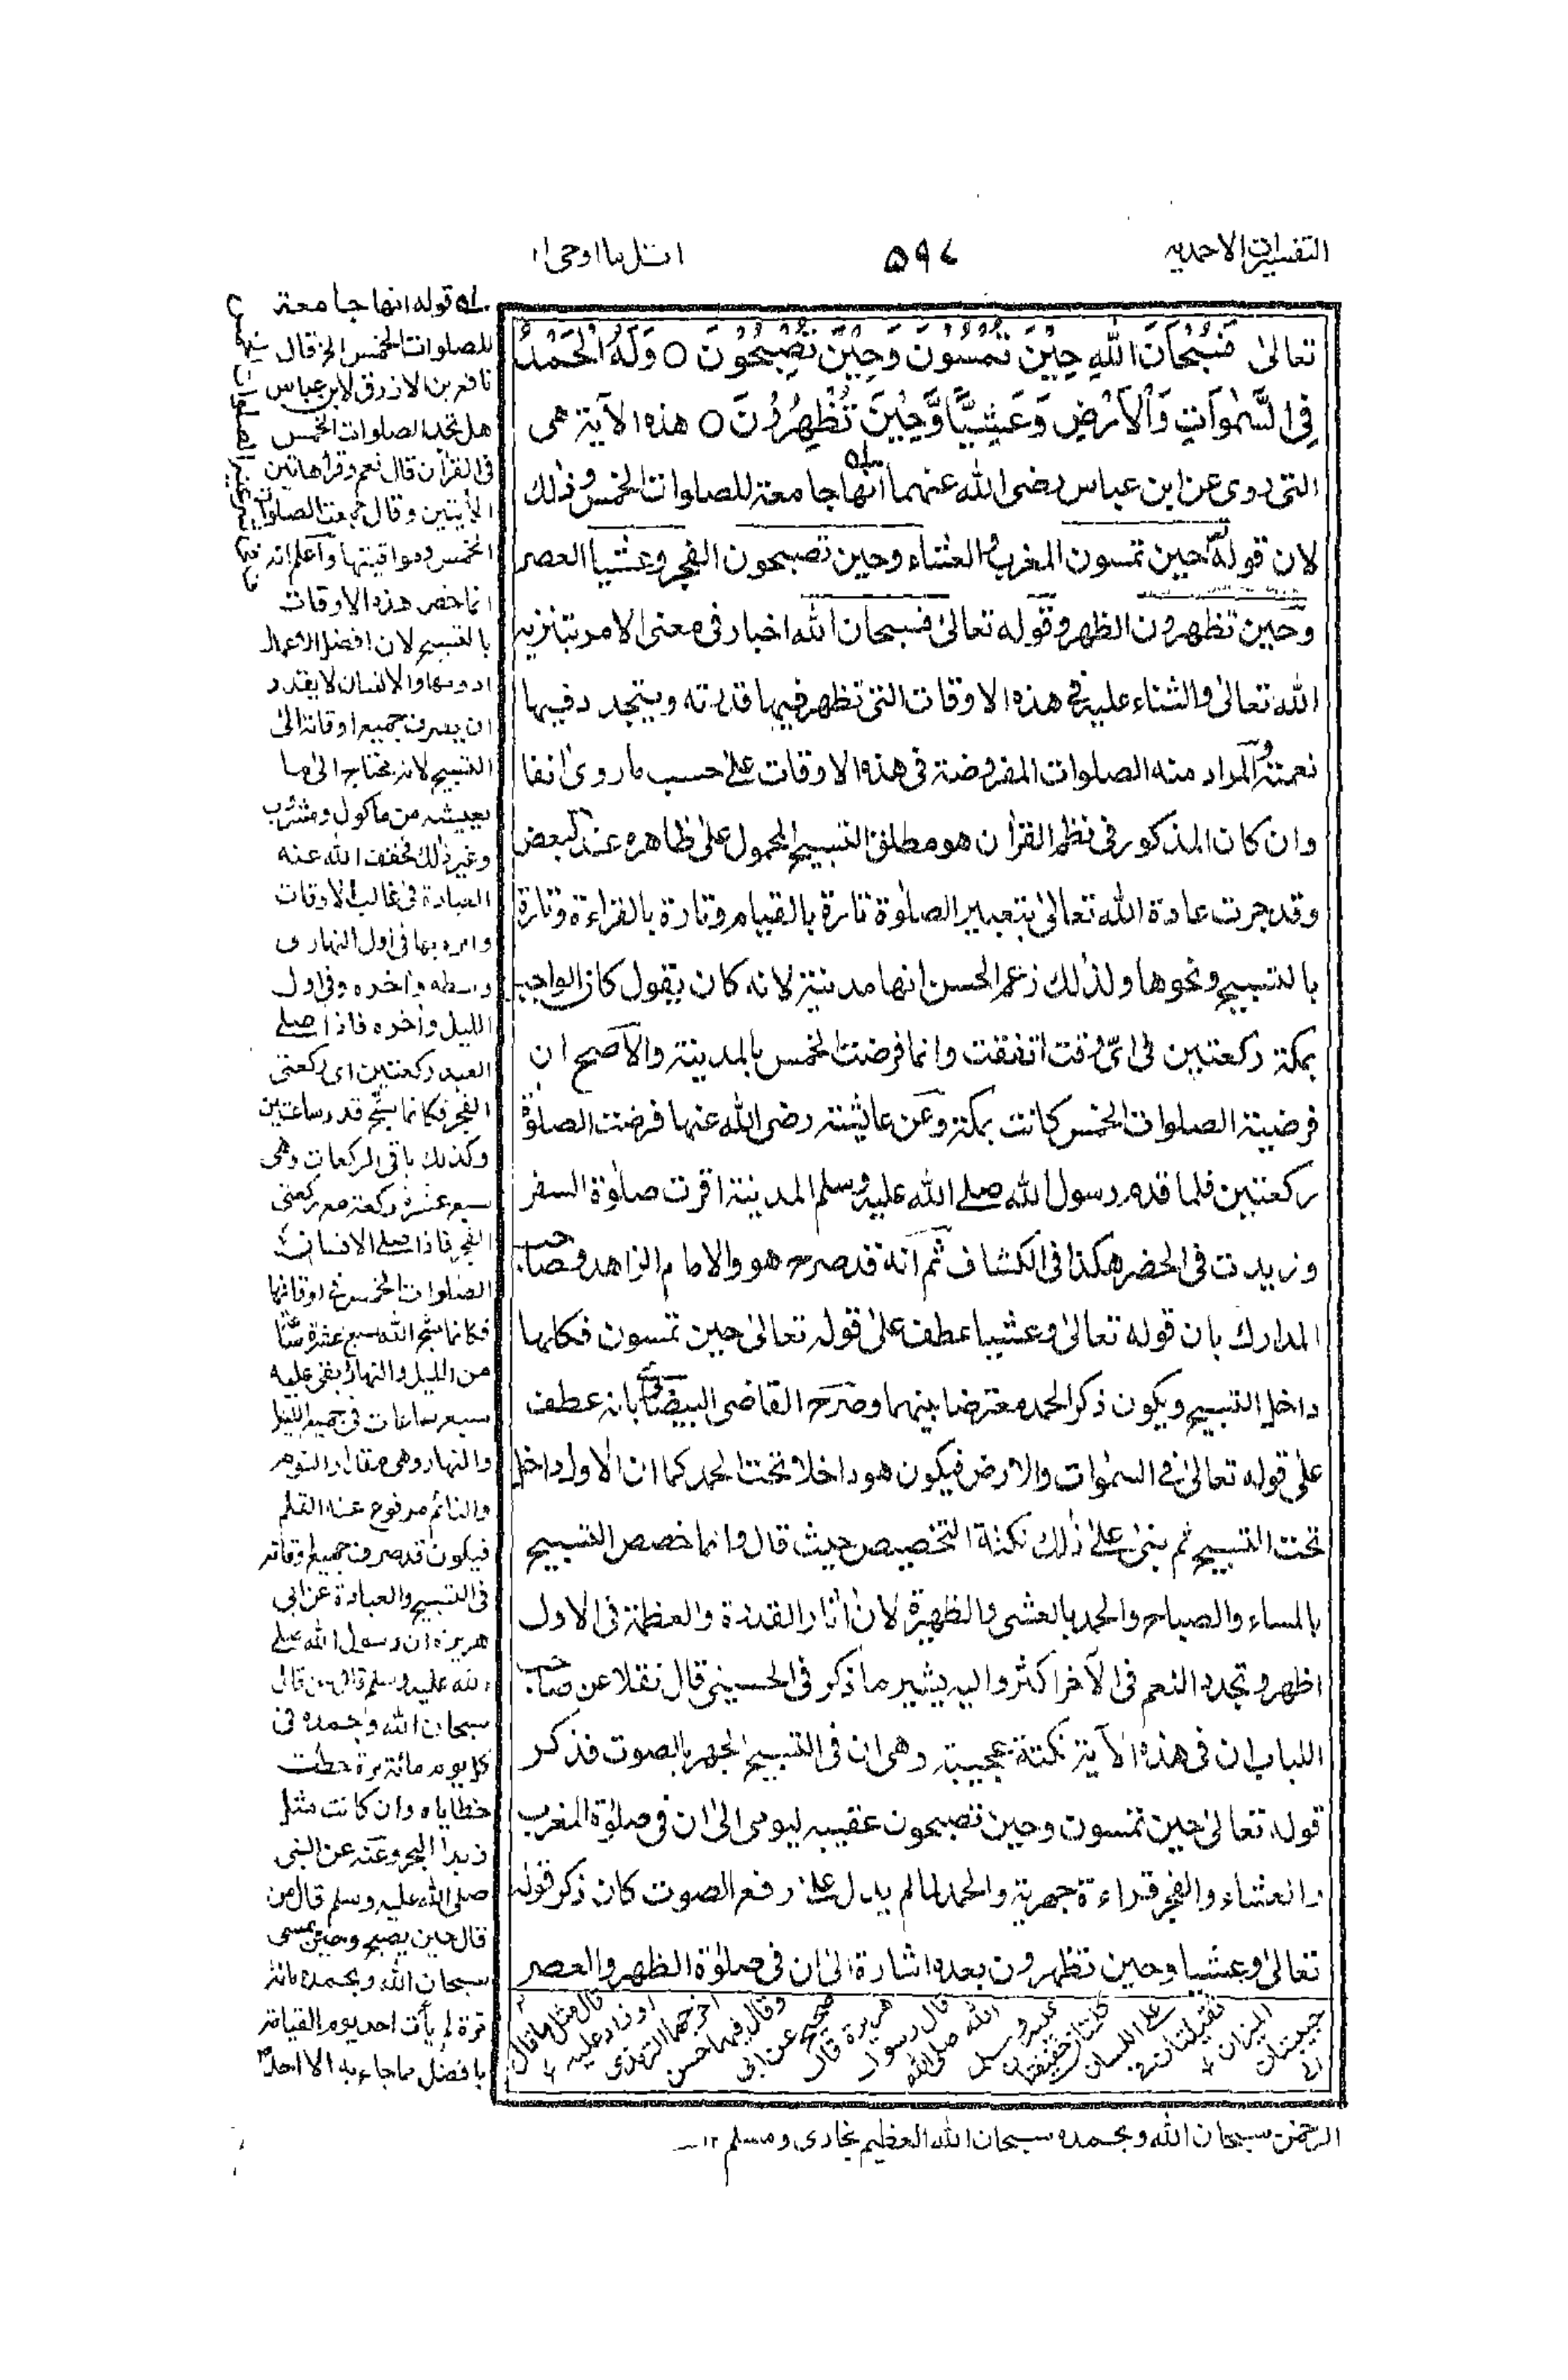 التفسيرات الاحمديه
۵۹۷
اتل ما اوحی ۲۱
تعالىٰ فَسُبْحَانَ اللهِ حِيْنَ تُمْسُوْنَ وَحِيْنَ تُصْبِحُوْنَ ○ وَلَهُ الْحَمْدُ
فِى السَّمٰوَاتِ وَالْاَرْضِ وَعَشِيًّا وَّحِيْنَ تُظْهِرُوْنَ ○ هذه الآية هى
التى روى عن ابن عباس رضى الله عنهما انها جامعة للصلوات الخمس وذلك
لان قوله حين تمسون المغرب والعشاء وحين تصبحون الفجر وعشيا العصر
وحين تظهرون الظهر وقوله تعالىٰ فسبحان الله اخبار فى معنى الامر بتنزيه
الله تعالىٰ والثناء عليه فى هذه الاوقات التى تظهر فيها قدرته ويتجدد فيها
نعمته والمراد منه الصلوات المفروضة فى هذه الاوقات على حسب ما روى انفا
وان كان المذكور فى نظم القرأن هو مطلق التسبيح المحمول على ظاهره عند البعض
وقد جرت عادة الله تعالىٰ بتعبير الصلوٰة تارة بالقيام وتارة بالقراءة وتارة
بالتسبيح ونحوها ولذلك زعم الحسن انها مدنية لانه كان يقول كان الواجب
بمكة ركعتين فى اىّ وقت اتفقت وانما فرضت الخمس بالمدينة والاصح ان
فرضية الصلوات الخمس كانت بمكة وعن عائشة رضى الله عنها فرضت الصلوٰة
ركعتين فلما قدم رسول الله صلى الله عليه وسلم المدينة اقرت صلوٰة السفر
وزيدت فى الحضر هكذا فى الكشاف ثم انه قد صرح هو والامام الزاهد وصاحب
المدارك بان قوله تعالىٰ وعشيا عطف على قوله تعالىٰ حين تمسون فكلها
داخل التسبيح ويكون ذكر الحمد معترضا بينهما وصرح القاضى البيضاوى بانه عطف
على قوله تعالىٰ فى السمٰوات والارض فيكون هو داخلا تحت الحمد كما ان الاول داخل
تحت التسبيح ثم بنى على ذلك نكتة التخصيص حيث قال وانما خصص التسبيح
بالمساء والصباح والحمد بالعشى والظهيرة لان أثار القدرة والعظمة فى الاول
اظهر وتجدد النعم فى الآخر اكثر واليه يشير ما ذكر فى الحسينى قال نقلا عن صاحب
اللباب ان فى هذه الآية نكتة عجيبة وهى ان فى التسبيح الجهر بالصوت فذكر
قوله تعالىٰ حين تمسون وحين تصبحون عقيبه ليومى الىٰ ان فى صلوٰة المغرب
والعشاء والفجر قراءة جهرية والحمد لما لم يدل على رفع الصوت كان ذكر قوله
تعالىٰ وعشيا وحين تظهرون بعده اشارة الىٰ ان فى صلوٰة الظهر والعصر
له قوله انها جامعة
للصلوات الخمس الخ قال
نافع بن الازرق لابن عباس
هل تجد الصلوات الخمس
فى القرأن قال نعم وقرأ هاتين
الأيتين وقال جمعت الصلوات
الخمس ومواقيتها واعلم انه
انما خص هذه الاوقات
بالتسبيح لان افضل الاعمال
ادومها والانسان لا يقدر
ان يصرف جميع اوقاته الىٰ
التسبيح لانه محتاج الىٰ ما
يعيشه من ماكول ومشرب
وغير ذلك فخفف الله عنه
العبادة فى غالب الاوقات
وامره بها فى اول النهار و
وسطه وأخره وفى اول
الليل وأخره فاذا صلى
العبد ركعتين اى ركعتى
الفجر فكانما سبّح قدر ساعتين
وكذلك باقى الركعات وهى
سبع عشرة ركعة مع ركعتى
الفجر فاذا صلى الانسان
الصلوات الخمس فى اوقاتها
فكانما سبح الله سبع عشرة ساعة
من الليل والنهار بقى عليه
سبع ساعات فى جميع الليل
والنهار وهى مقدار النوم
والنائم مرفوع عنه القلم
فيكون قد صرف جميع اوقاته
فى التسبيح والعبادة عن ابى
هريرة ان رسول الله صلى
الله عليه وسلم قال من قال
سبحان الله وبحمده فى
كل يوم مائة مرة حطت
خطاياه وان كانت مثل
زبد البحر وعنه عن النبى
صلى الله عليه وسلم قال من
قال حين يصبح وحين يمسى
سبحان الله وبحمده مائة
مرة لم يأت احد يوم القيامة
بافضل مما جاء به الا احد
قال مثل ما قال
او زاد عليه
اخرجهما الترمذى
وقال فيهما حسن
صحيح عن ابى
هريرة قال
قال رسول
الله صلى الله
عليه وسلم
كلمتان خفيفتان
على اللسان
ثقيلتان فى
الميزان
حبيبتان
الى
الرحمٰن سبحان الله وبحمده سبحان الله العظيم بخارى ومسلم ۱۲